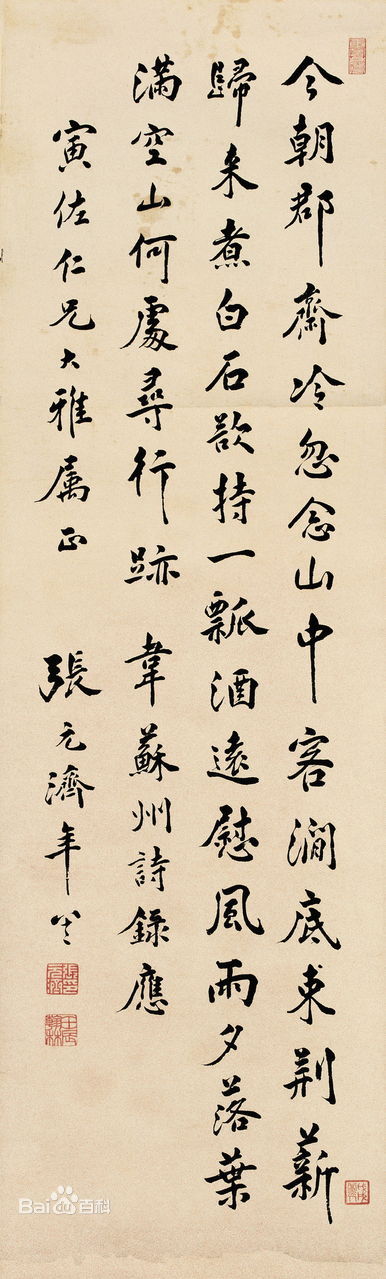 今朝郡齋冷忽念山中客澗底束荊薪
歸来煮白石欲持一瓢酒遠慰風雨夕落葉
滿空山何處尋行跡 韋蘇州詩錄應
寅佐仁兄大雅属正 張元濟年
Bai百科